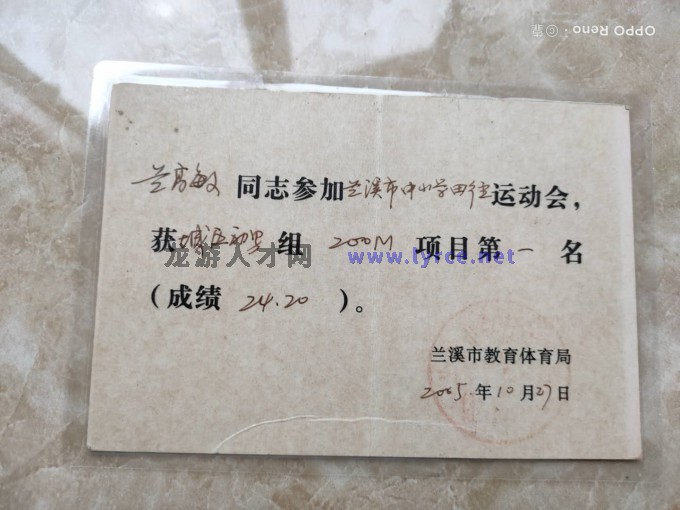 兰高敏 同志参加兰溪市中小学田径运动会，
获 城区初男 组 200M 项目第 一 名
（成绩 24.20 ）。
兰溪市教育体育局
2005.年10月27日
龙游人才网 www.lyrce.net
OPPO Reno